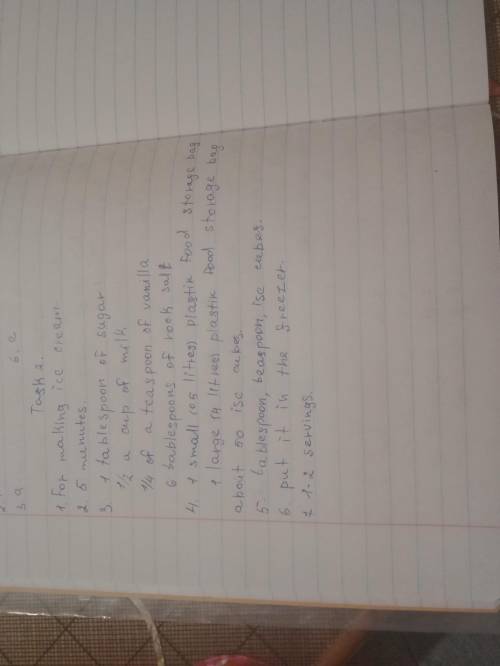 3 a 6. c
Task 2.
1. For making ice cream
2. 5 menutes.
3 1 tablespoon of sugar
1/2 a cup of milk
1/4 of a teaspoon of vanilla
6 tablespoons of rock salt
4. 1 small (0 5 litres) plastik food storage bag
1 large (4 litres) plastik food storage bag
about 50 ise cubes.
5. tablespoon, teaspoon, ise cubes.
6 put it in the freezer.
7 1-2 servings.